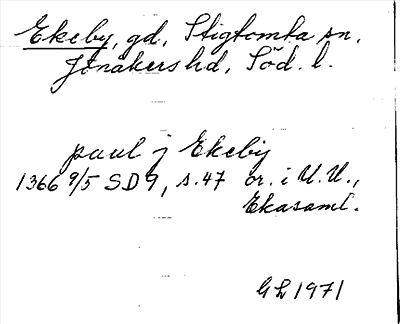 Ekeby, gd, Stigtomta sn,
Jönåkers hd, Söd. l.
paul j Ekeby
1366 9/5 SD 9, s. 47 or. i U.U.,
Ekasaml.
GL 1971